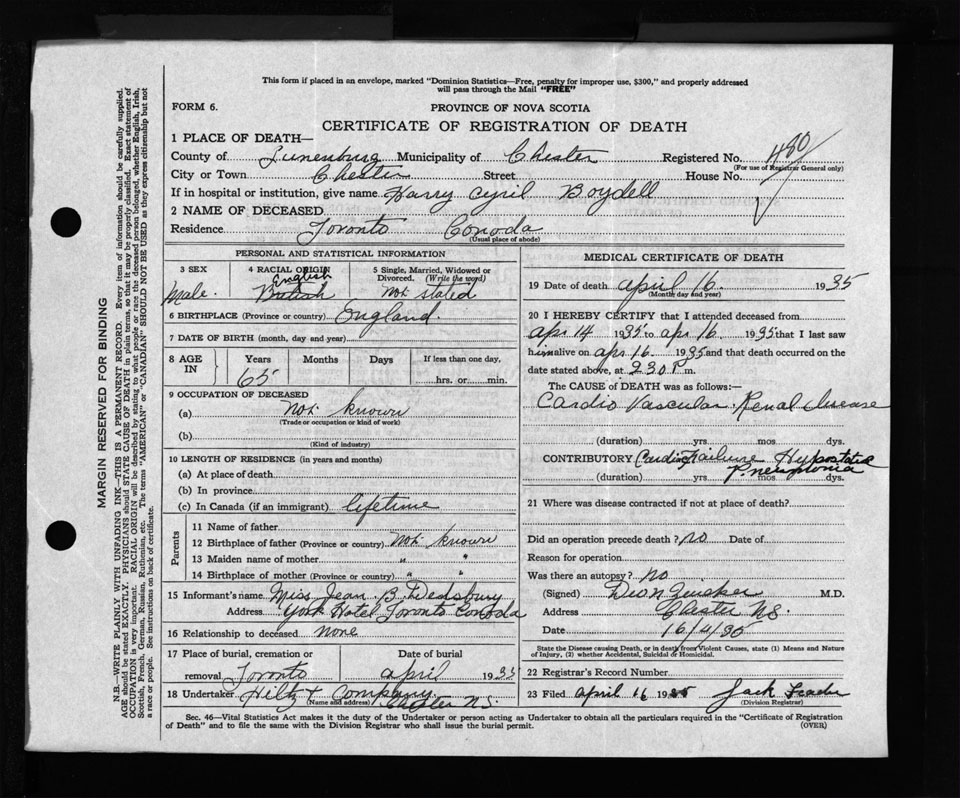 This form if placed in an envelope, marked "Dominion Statistics—Free, penalty for improper use, $300," and properly addressed
will pass through the Mail "FREE"
FORM 6.
PROVINCE OF NOVA SCOTIA
CERTIFICATE OF REGISTRATION OF DEATH
1 PLACE OF DEATH—
County of Lunenburg Municipality of Chester Registered No. 480
(For use of Registrar General only)
City or Town Chester Street House No.
If in hospital or institution, give name Harry Cyril Boydell
2 NAME OF DECEASED
Residence Toronto Canada
(Usual place of abode)
PERSONAL AND STATISTICAL INFORMATION
3 SEX Male
4 RACIAL ORIGIN English British
5 Single, Married, Widowed or Divorced. (Write the word) Not stated
6 BIRTHPLACE (Province or country) England.
7 DATE OF BIRTH (month, day and year)
8 AGE IN Years Months Days If less than one day,
65 hrs. or min.
9 OCCUPATION OF DECEASED
(a) Not known
(Trade or occupation or kind of work)
(b)
(Kind of industry)
10 LENGTH OF RESIDENCE (in years and months)
(a) At place of death
(b) In province
(c) In Canada (if an immigrant) lifetime
Parents
11 Name of father
12 Birthplace of father (Province or country) Not known
13 Maiden name of mother " "
14 Birthplace of mother (Province or country) " "
15 Informant's name Miss Jean B.
Address York Hotel Toronto Canada
16 Relationship to deceased none
17 Place of burial, cremation or removal Toronto Date of burial april 1935
18 Undertaker Hiltz & Company
(Name and address) Chester N.S.
MEDICAL CERTIFICATE OF DEATH
19 Date of death april 16 1935
(Month day and year)
20 I HEREBY CERTIFY that I attended deceased from
apr 14 1935 to apr 16 1935 that I last saw
him alive on apr 16 1935 and that death occurred on the
date stated above, at 2 30 P m.
The CAUSE of DEATH was as follows:—
Cardio Vascular Renal disease
(duration) yrs. mos. dys.
CONTRIBUTORY Cardiac Failure Hypostatic
Pneumonia
(duration) yrs. mos. dys.
21 Where was disease contracted if not at place of death?
Did an operation precede death? no Date of
Reason for operation
Was there an autopsy? no
(Signed) M.D.
Address Chester N.S.
Date 16/4/35
State the Disease causing Death, or in death from Violent Causes, state (1) Means and Nature
of Injury, (2) whether Accidental, Suicidal or Homicidal.
22 Registrar's Record Number
23 Filed april 16 1935 Jack
(Division Registrar)
Sec. 46—Vital Statistics Act makes it the duty of the Undertaker or person acting as Undertaker to obtain all the particulars required in the "Certificate of Registration
of Death" and to file the same with the Division Registrar who shall issue the burial permit. (OVER)
MARGIN RESERVED FOR BINDING
N.B.—WRITE PLAINLY WITH UNFADING INK—THIS IS A PERMANENT RECORD. Every item of information should be carefully supplied.
AGE should be stated EXACTLY. PHYSICIANS should STATE CAUSE OF DEATH in plain terms, so that it may be properly classified. Exact statement of
OCCUPATION is very important. RACIAL ORIGIN will be described by stating to what people or race the deceased person belonged, whether English, Irish,
Scottish, French, German, Russian, Ruthenian, etc. The terms "AMERICAN" or "CANADIAN" SHOULD NOT BE USED as they express citizenship but not
a race or people. See instructions on back of certificate.